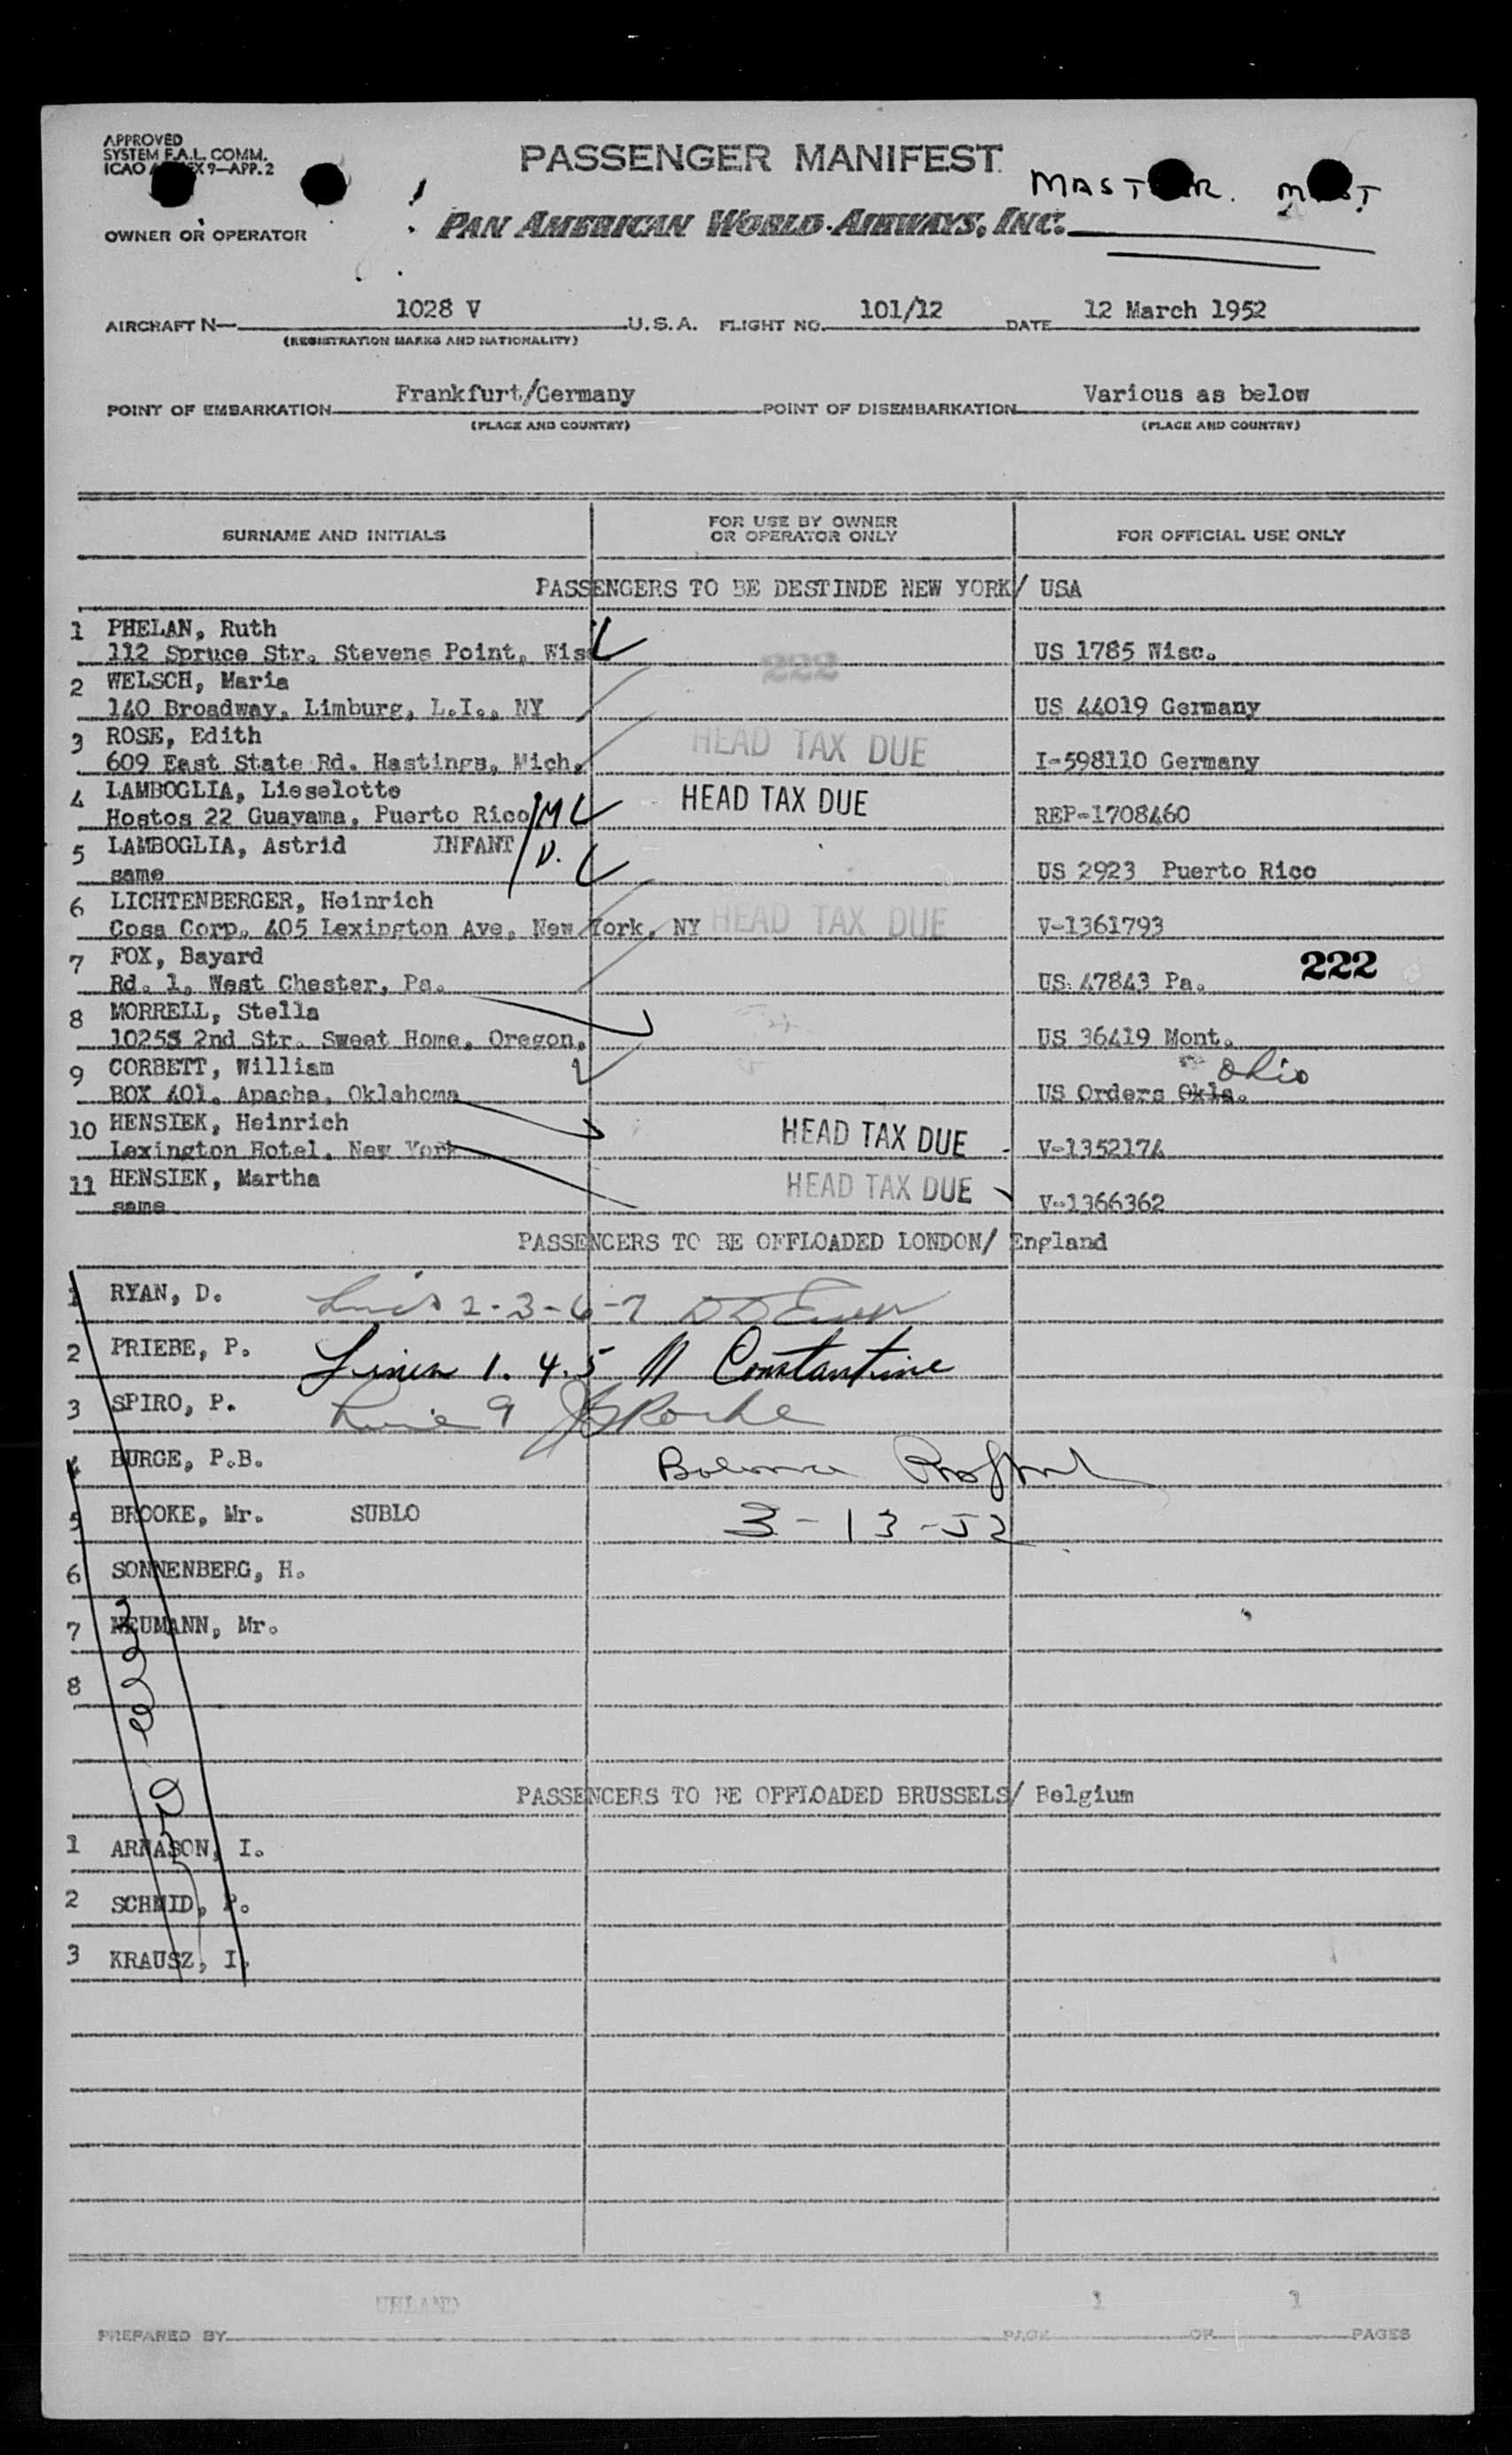 APPROVED
SYSTEM F.A.L. COMM.
ICAO 9—APP. 2
PASSENGER MANIFEST
MAST R. M T
OWNER OR OPERATOR
PAN AMERICAN WORLD AIRWAYS, INC.
AIRCRAFT N— 1028 V U.S.A. FLIGHT NO. 101/12 DATE 12 March 1952
(REGISTRATION MARKS AND NATIONALITY)
POINT OF EMBARKATION Frankfurt/Germany POINT OF DISEMBARKATION Various as below
(PLACE AND COUNTRY) (PLACE AND COUNTRY)
SURNAME AND INITIALS FOR USE BY OWNER OR OPERATOR ONLY FOR OFFICIAL USE ONLY
PASSENGERS TO BE DESTINDE NEW YORK/ USA
1 PHELAN, Ruth
112 Spruce Str. Stevens Point, Wis US 1785 Wisc.
222
2 WELSCH, Maria
140 Broadway, Limburg, L.I., NY US 44019 Germany
3 ROSE, Edith
HEAD TAX DUE
609 East State Rd. Hastings, Mich. I-598110 Germany
4 LAMBOGLIA, Lieselotte
HEAD TAX DUE
Hostos 22 Guayama, Puerto Rico M REP-1708460
5 LAMBOGLIA, Astrid INFANT D.
same US 2923 Puerto Rico
6 LICHTENBERGER, Heinrich
HEAD TAX DUE
Cosa Corp. 405 Lexington Ave, New York, NY V-1361793
7 FOX, Bayard
222
Rd. 1, West Chester, Pa. US 47843 Pa.
8 MORRELL, Stella
1025S 2nd Str. Sweet Home, Oregon. US 36419 Mont.
9 CORBETT, William
Ohio
BOX 401, Apache, Oklahoma US Orders Okla.
10 HENSIEK, Heinrich
HEAD TAX DUE
Lexington Hotel, New York V-1352174
11 HENSIEK, Martha
HEAD TAX DUE
same V-1366362
PASSENGERS TO BE OFFLOADED LONDON/ England
1 RYAN, D. 2-3-6-7
2 PRIEBE, P. Lines 1. 4. 5 Constantine
3 SPIRO, P. Line 9 Roche
4 BURGE, P.B.
5 BROOKE, Mr. SUBLO 3-13-52
6 SONNENBERG, H.
7 NEUMANN, Mr.
8
PASSENGERS TO BE OFFLOADED BRUSSELS/ Belgium
1 ARNASON, I.
2 SCHMID, P.
3 KRAUSZ, I.
UHLAND 1 1
PREPARED BY PAGE OF PAGES